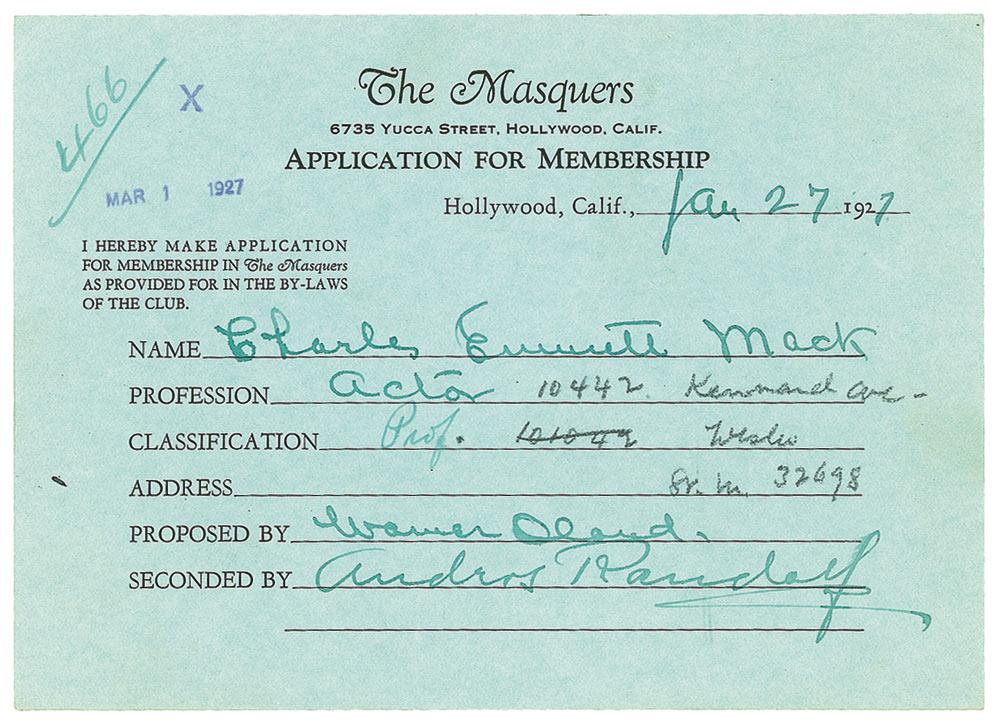 466
X
MAR 1 1927
The Masquers
6735 YUCCA STREET, HOLLYWOOD, CALIF.
APPLICATION FOR MEMBERSHIP
Hollywood, Calif., Jan 27 1927
I HEREBY MAKE APPLICATION
FOR MEMBERSHIP IN The Masquers
AS PROVIDED FOR IN THE BY-LAWS
OF THE CLUB.
NAME Charles Emmett Mack
PROFESSION Actor 10442 Ave -
CLASSIFICATION Prof. 101042
ADDRESS 32698
PROPOSED BY Warner Oland.
SECONDED BY Anders Randolf